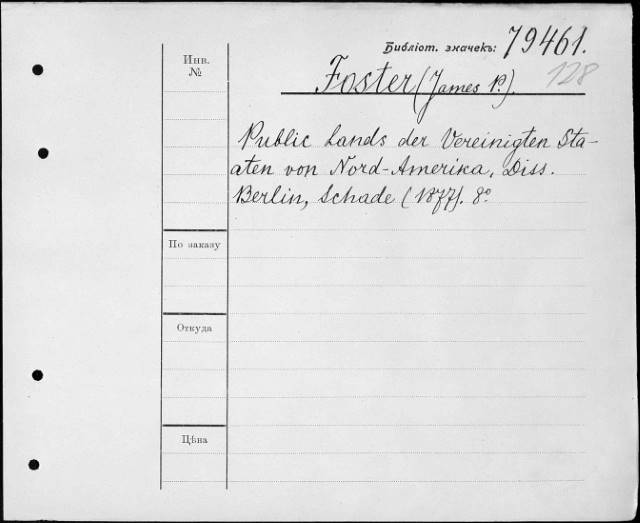 Библіот. значекъ: 79461.
Инв.
№
Foster (James P.).
128
Public Lands der Vereinigten Sta-
aten von Nord-Amerika, Diss.
Berlin, Schade (1877). 8º
По заказу
Откуда
Цѣна